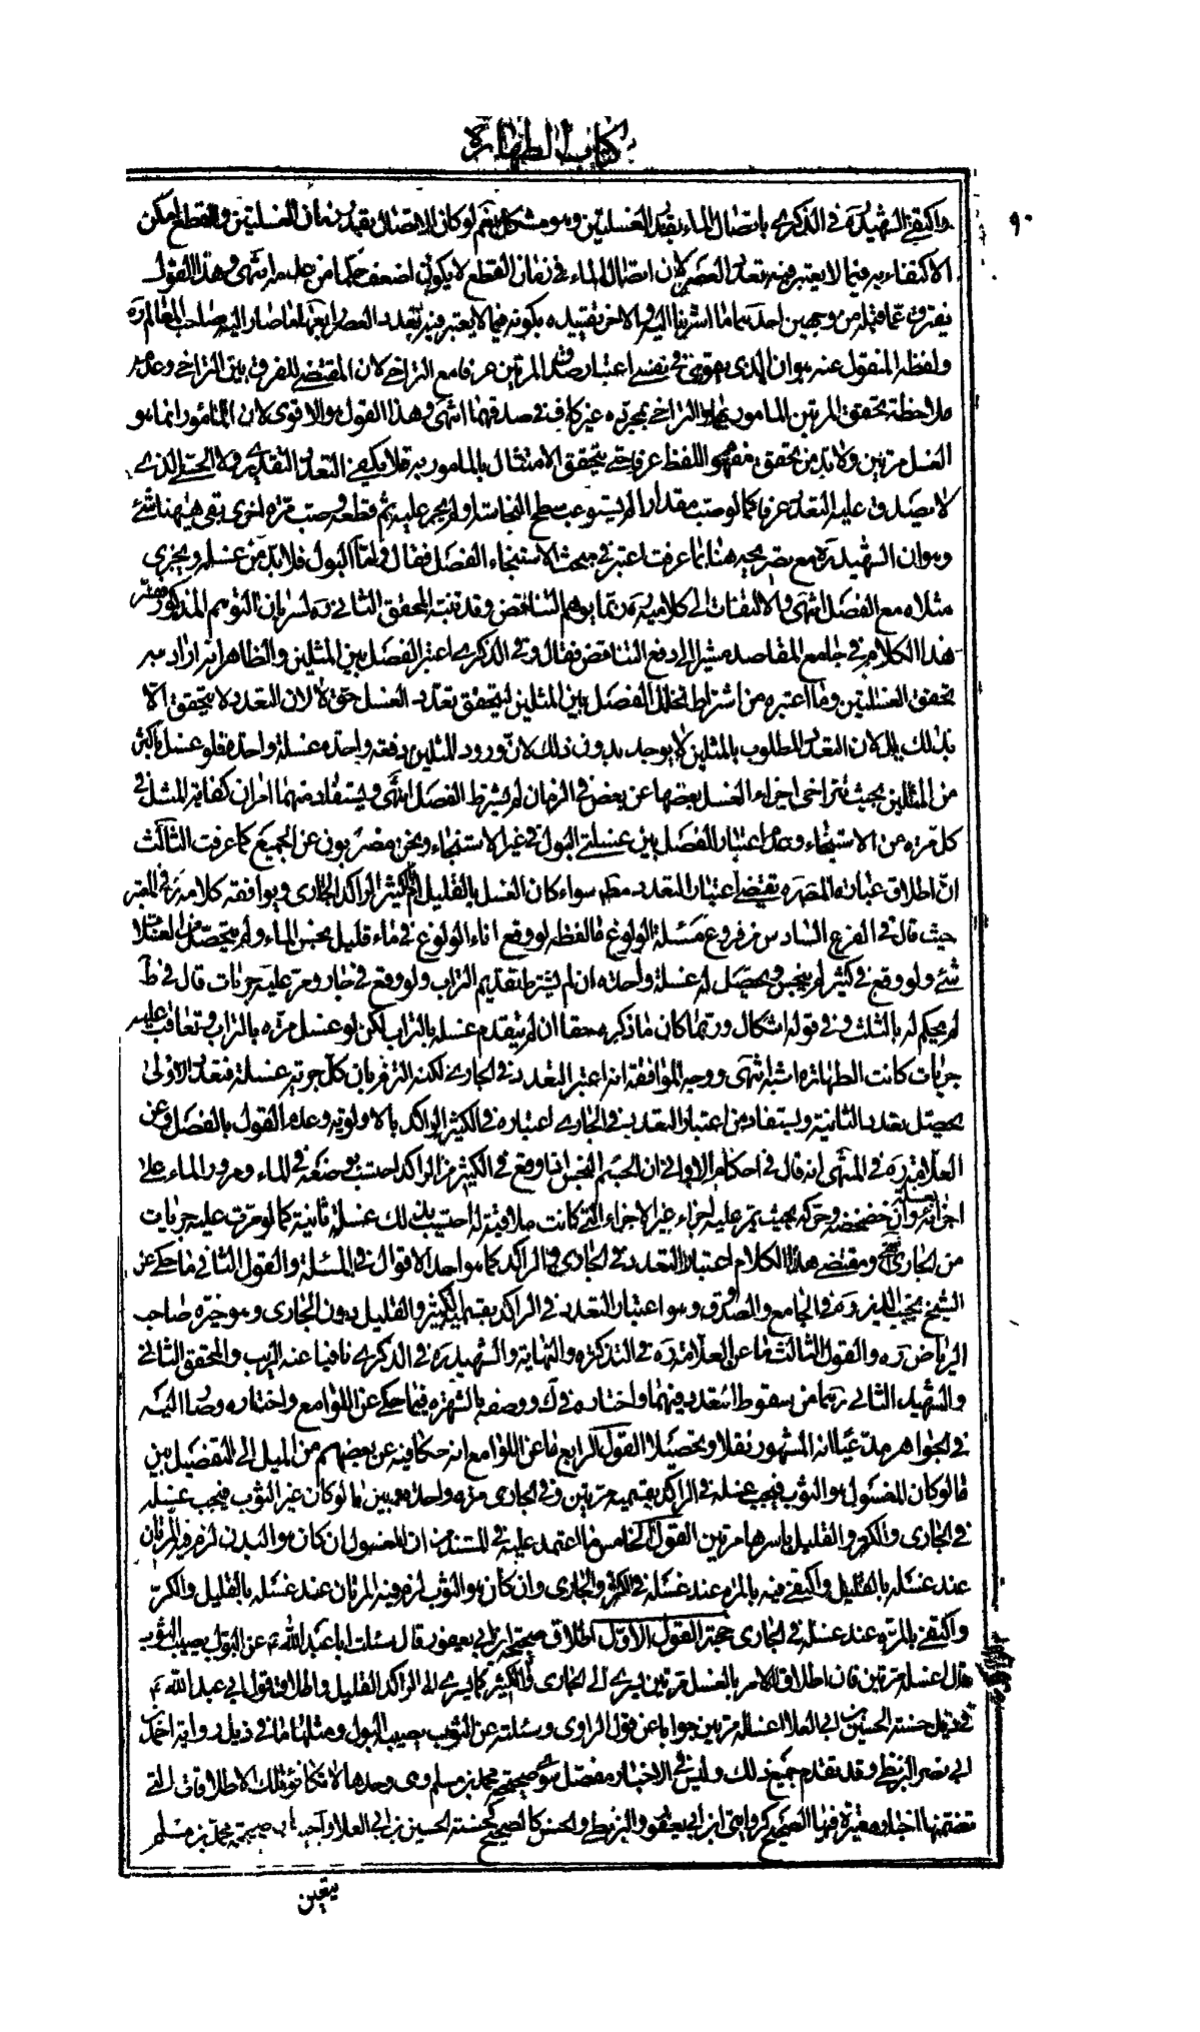 كتاب الطهارة
٩٠
واكتفى الشهيد ره في الذكرى باتصال الماء بقدر الغسلتين وهو مشكل نعم لو كان الاتصال بقدر زمان الغسلتين والقطع امكن
الاكتفاء به فيما لا يعتبر فيه تعدد العصر لان اتصال الماء في زمان القطع لا يكون اضعف حكما من عدمه انتهى وهذا القول
يفترق عما قبله من وجهين احدهما ما اشرنا اليه والاخر تقييده بكونه فيما لا يعتبر فيه تعدد العصر رابعها ما صار اليه صاحب المعالم ره
ولفظه المنقول عنه هو ان الذي يقوى في نفسي اعتبار صدق المرتين عرفا مع التراخي لان المقتضى للفرق بين التراخي وعدمه
ملاحظة تحقق المرتين المامور بهما والتراخي بمجرده غير كاف في صدقهما انتهى وهذا القول هو الاقوى لان المامور انما هو
الغسل مرتين ولا بد من تحقق مفهوم اللفظ عرفا حتى يتحقق الامتثال بالمامور به فلا يكفى التعدد التقديري ولا الحسي الذي
لا يصدق عليه التعدد عرفا كما لو صب مقدارا لم يستوعب سطح النجاسة او لم يجر عليه ثم قطعه وصب مرة اخرى بقى هيهنا شئ
وهو ان الشهيد ره مع تصريحه هنا بما عرفت اعتبر في مبحث الاستنجاء الفصل فقال واما البول فلا بد من غسله ويجزي
مثلاه مع الفصل انتهى والالتفات الى كلاميه ره ربما يوهم التناقض وقد تنبه المحقق الثاني ره لسريان التوهم المذكور
هذا الكلام في جامع المقاصد مشيرا الى دفع التناقض فقال وفي الذكرى اعتبر الفصل بين المثلين والظاهر انه اراد به
تحقق الغسلتين وما اعتبره من اشتراط تخلل الفصل بين المثلين ليتحقق تعدد الغسل حق لا لان التعدد لا يتحقق الا
بذلك بل لان التعدد المطلوب بالمثلين لا يوجد بدون ذلك لان ورود المثلين دفعة واحدة غسلة واحدة فلو غسل باكثر
من المثلين بحيث تتراخى اجزاء الغسل بعضها عن بعض في الزمان لم يشترط الفصل انتهى ويستفاد منهما امران كفاية المثل في
كل مرة من الاستنجاء وعدم اعتبار الفصل بين غسلتي البول في غير الاستنجاء ونحن مضربون عن الجميع كما عرفت الثالث
ان اطلاق عبارة المصنف ره يقتضى اعتبار التعدد مطلقا سواء كان الغسل بالقليل ام الكثير الراكد او الجاري ويوافقه كلامه ره في المعتبر
حيث قال في الفرع السادس من فروع مسئلة الولوغ ما لفظه لو وقع اناء الولوغ في ماء قليل نجس الماء ولم يتحصل من الغسلات
شئ ولو وقع في كثير لم ينجس ويحصل له غسلة واحدة ان لم يشترط تقديم التراب ولو وقع في جار ومر عليه جريات قال في ط
لم يحكم له بالثلث وفي قوله اشكال وربما كان ما ذكره حقا ان لم يتقدم غسله بالتراب لكن لو غسل مرة بالتراب وتعاقب عليه
جريات كانت الطهارة اشبه انتهى ووجه الموافقة انه اعتبر التعدد في الجاري لكنه التزم بان كل جرية غسلة فتعدد الاولى
يحصل بتعدد الثانية ويستفاد من اعتبار التعدد في الجاري اعتباره في الكثير الراكد بالاولوية وعدم القول بالفصل وعن
العلامة ره في المنتهى انه قال في احكام الاواني ان الجسم النجس اذا وقع في الكثير من الراكد احتسب بوضعه في الماء ومرور الماء على
اجزائه غسلة وان خضخضه وحركه بحيث يمر عليه اجزاء غير الاجزاء التي كانت ملاقية له احتسب بذلك غسلة ثانية كما لو مرت عليه جريات
من الجاري انتهى ومقتضى هذا الكلام اعتبار التعدد في الجاري والراكد كما هو احد الاقوال في المسئلة والقول الثاني ما حكى عن
الشيخ نجيب الدين ره في الجامع والصدوق وهو اعتبار التعدد في الراكد بقسميه الكثير والقليل دون الجاري وهو خيرة صاحب
الرياض ره والقول الثالث ما عن العلامة ره في التذكرة والنهاية والشهيد ره في الذكرى نافيا عنه الريب والمحقق الثاني
والشهيد الثاني رهما من سقوط التعدد فيهما واختاره في ك ووصفه بالشهرة فيما حكى عن اللوامع واختاره وصار اليه
في الجواهر مدعيا انه المشهور نقلا وتحصيلا القول الرابع ما عن اللوامع انه حكا فيه عن بعضهم من الميل الى التفصيل بين
ما لو كان المغسول هو الثوب فيجب غسله في الراكد بقسميه مرتين وفي الجاري مرة واحدة وبين ما لو كان غير الثوب فيجب غسله
في الجاري والكر والقليل باسرها مرتين القول الخامس ما اعتمد عليه في المستند من ان المغسول ان كان هو البدن لزم فيه المرتان
عند غسله بالقليل واكتفى فيه بالمرة عند غسله في الكثير والجاري وان كان هو الثوب لزم فيه المرتان عند غسله بالقليل والكر
واكتفى بالمرة عند غسله في الجاري حجة القول الاول اطلاق صحيحة ابن ابي يعفور قال سئلت ابا عبد الله ع عن البول يصيب الثوب
قال اغسله مرتين فان اطلاق الامر بالغسل مرتين يسرى الى الجاري والكثير كما يسرى الى الراكد القليل واطلاق قول ابي عبد الله ع
في ذيل حسنة الحسين بن ابي العلا اغسله مرتين جوابا عن قول الراوي وسئلته عن الثوب يصيبه البول ومثلها ما في ذيل رواية احمد بن
ابي نصر البزنطي وقد تقدم جميع ذلك وليس في الاخبار مفصل سوى صحيحة محمد بن مسلم وهي وحدها لا تكافؤ تلك الاطلاقات التي
تضمنها اخبار معتبرة فيها الصحيح كروايتي ابن ابي يعفور والبزنطي والحسن كالصحيح كحسنة الحسين بن ابي العلا واجيب بان صحيحة محمد بن مسلم
يتعين